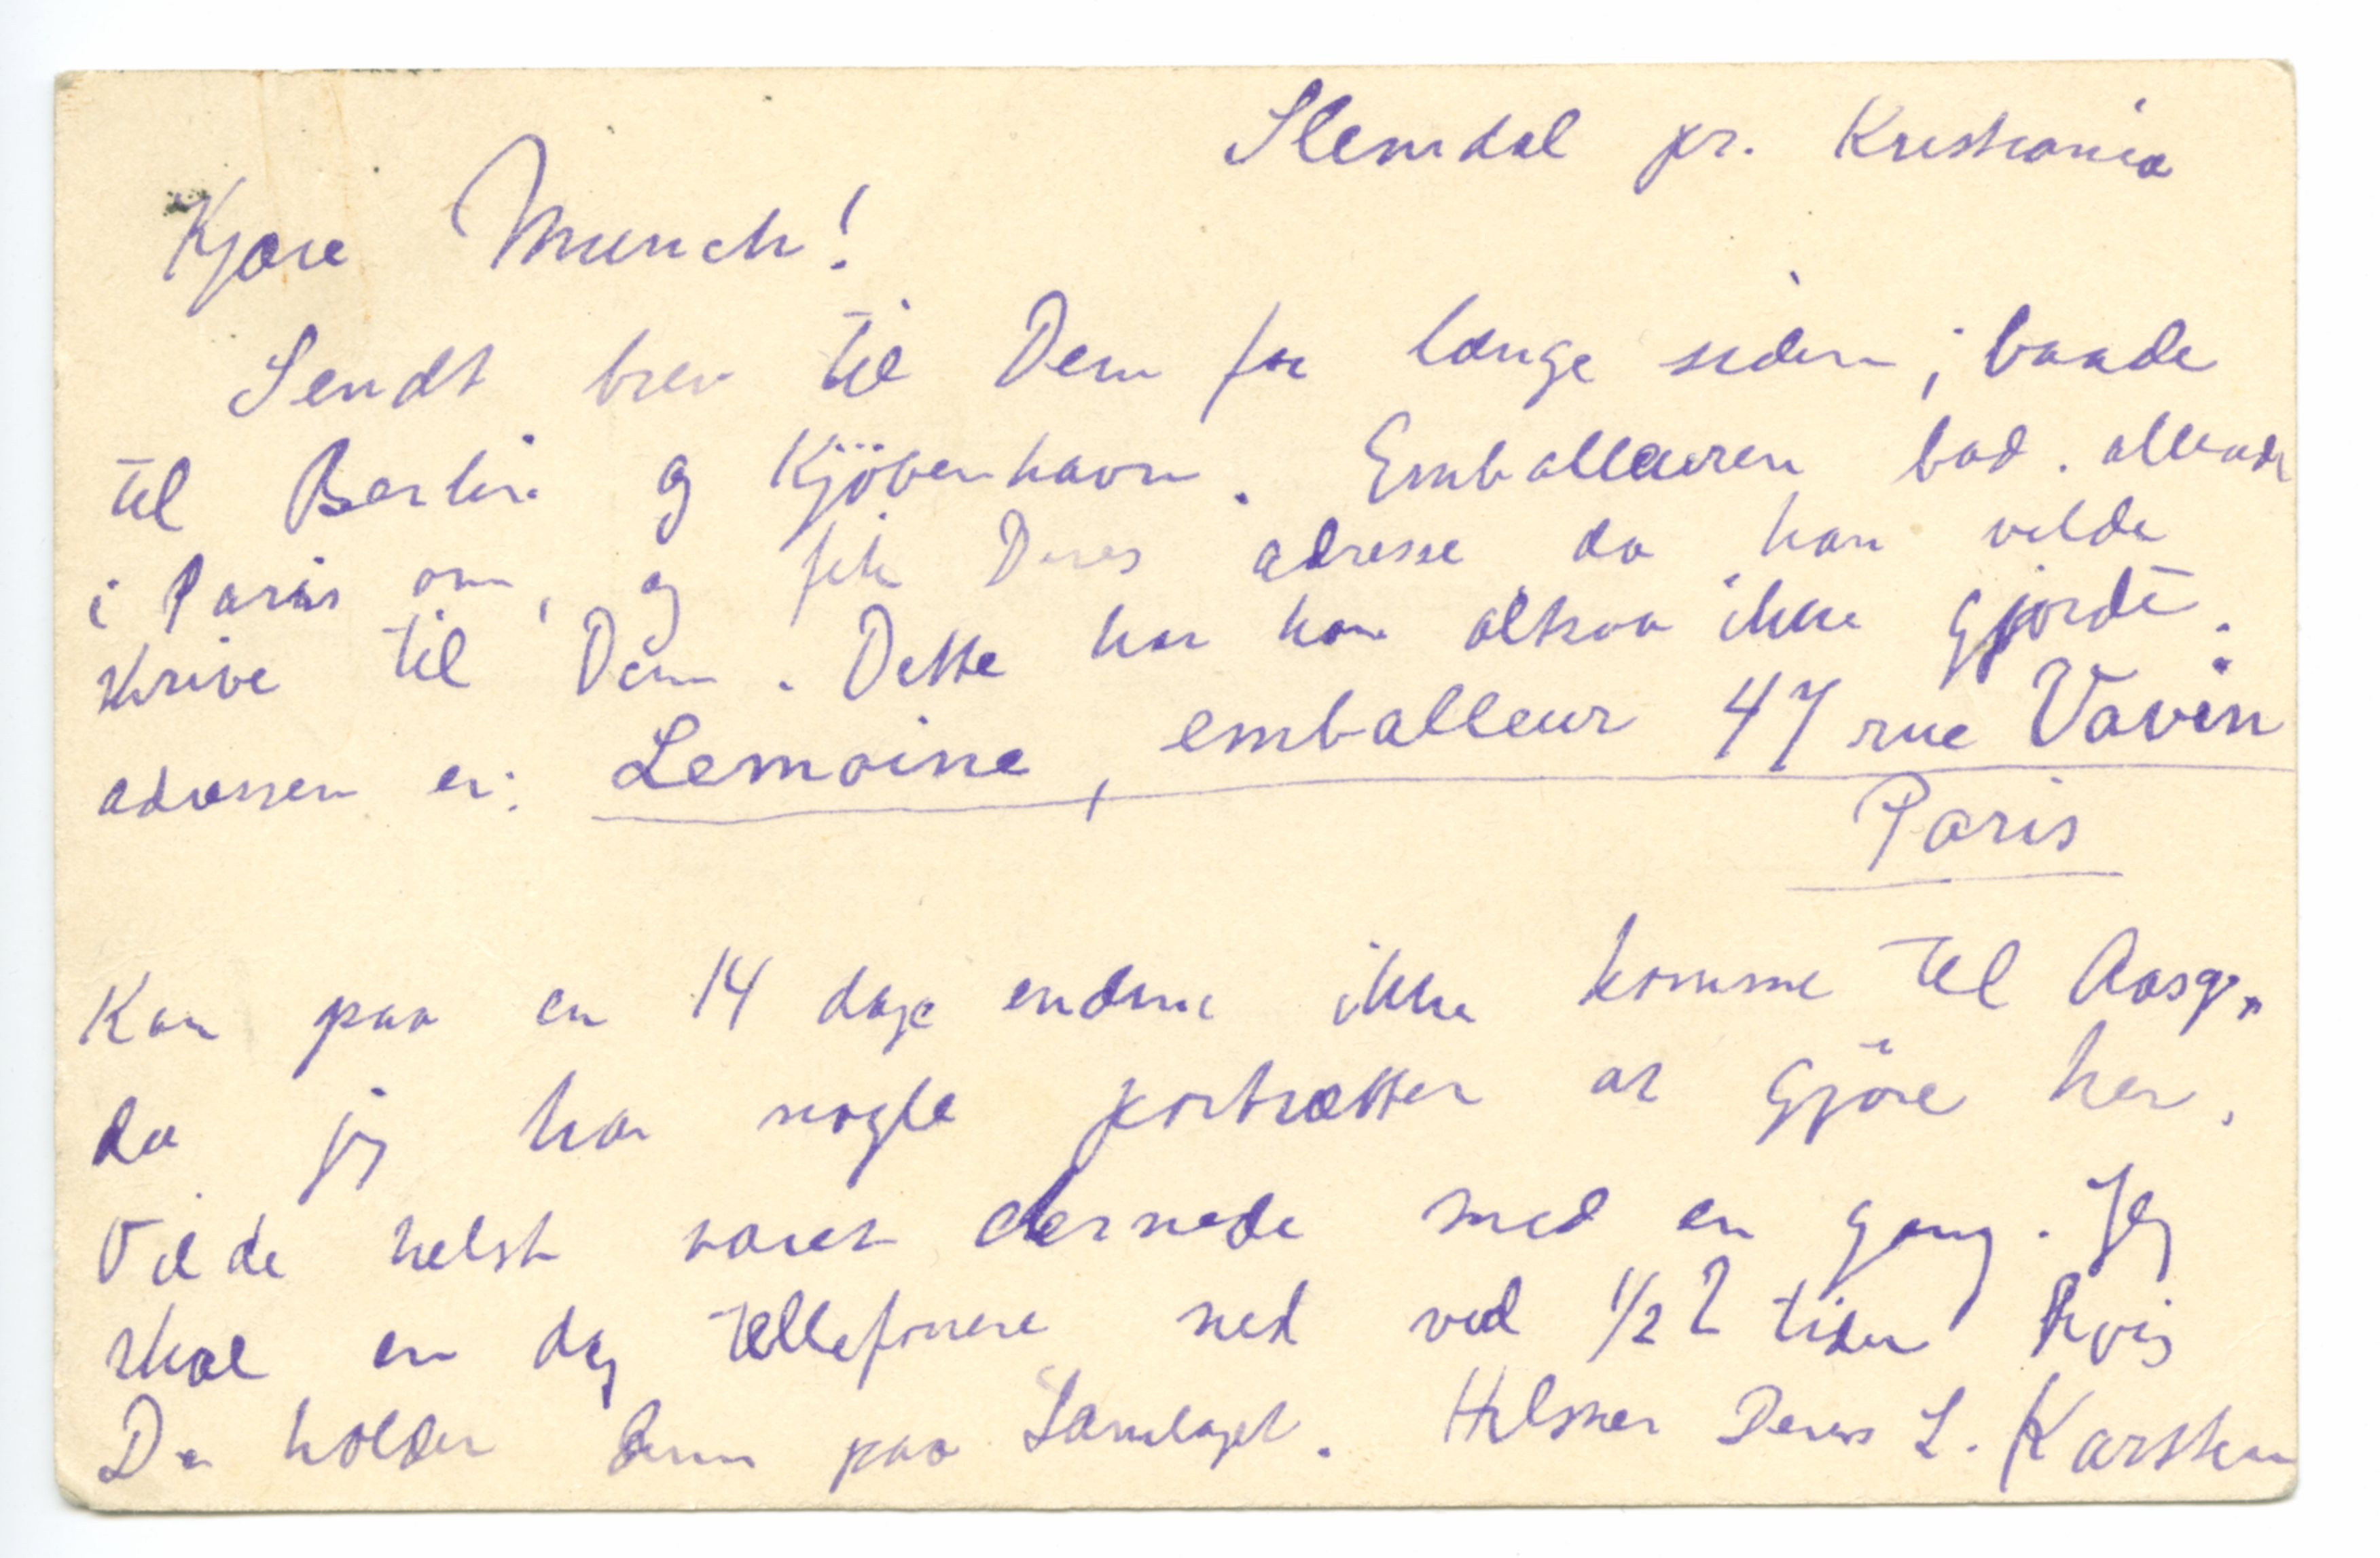 Slemdal pr. Kristiania
Kjære Munch!
Sendt brev til Dem for længe siden, baade
til Berlin og Kjöbenhavn. Emballeuren bad allerede
i Paris om, og fik Deres adresse da han vilde
skrive til Dem. Dette har han altsaa ikke gjordt.
adressen er: Lemoine, emballeur 47 rue Vavin
Paris
Kan paa en 14 dage endnu ikke komme til Aasg.
da jeg har nogle portrætter at gjöre her.
Vilde helst været dernede med en gang. Jeg
skal en dag tellefonere ned ved 1/2 2 tiden hvis
De holder dem paa Samlaget. Hilsner Deres L. Karsten